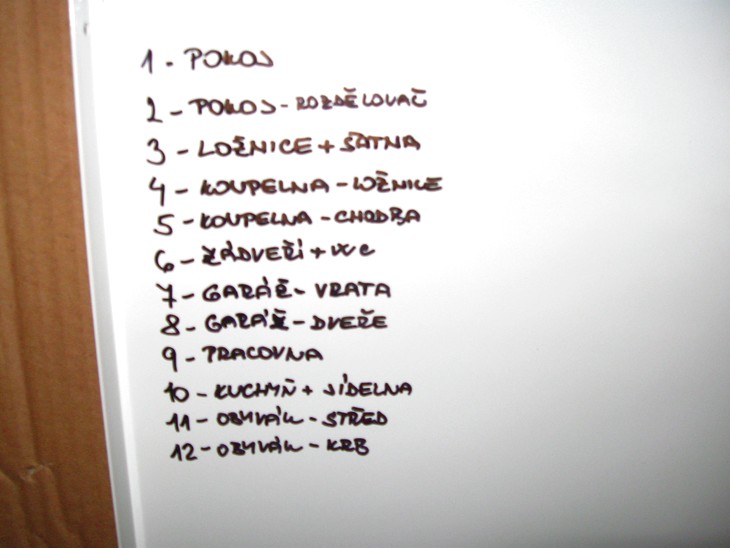 1 - POKOJ
2 - POKOJ - ROZDĚLOVAČ
3 - LOŽNICE + ŠATNA
4 - KOUPELNA - LOŽNICE
5 - KOUPELNA - CHODBA
6 - ZÁDVEŘÍ + WC
7 - GARÁŽ - VRATA
8 - GARÁŽ - DVEŘE
9 - PRACOVNA
10 - KUCHYŇ + JÍDELNA
11 - OBÝVÁK - STŘED
12 - OBÝVÁK - KRB